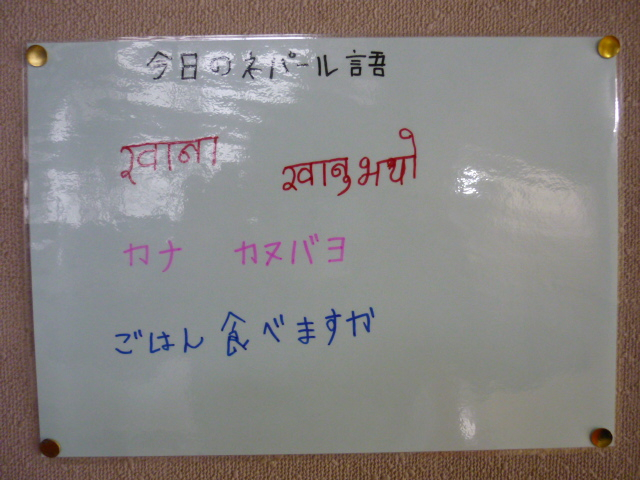 今日のネパール語
खाना खानुभयो
カナ カヌバヨ
ごはん 食べますか